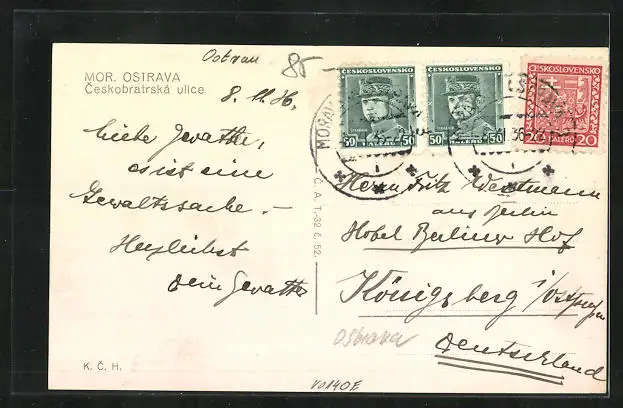 Ostrau
85
MOR. OSTRAVA
Českobratrská ulice
8. 11. 36,
Liebe Gevatter,
es ist eine
Gewaltssache. –
Herzlichst
Dein Gevatter
K. Č. H.
Č. A. T.-32 č. 52.
ČESKOSLOVENSKO
50 HALÉŘŮ 50
ČESKOSLOVENSKO
50 HALÉŘŮ 50
ČESKOSLOVENSKO
20 HALÉŘŮ 20
Herrn Fritz
aus Berlin
Hotel Berliner Hof
Königsberg i/Ostpreußen
Deutschland
Ostrava
V0140E